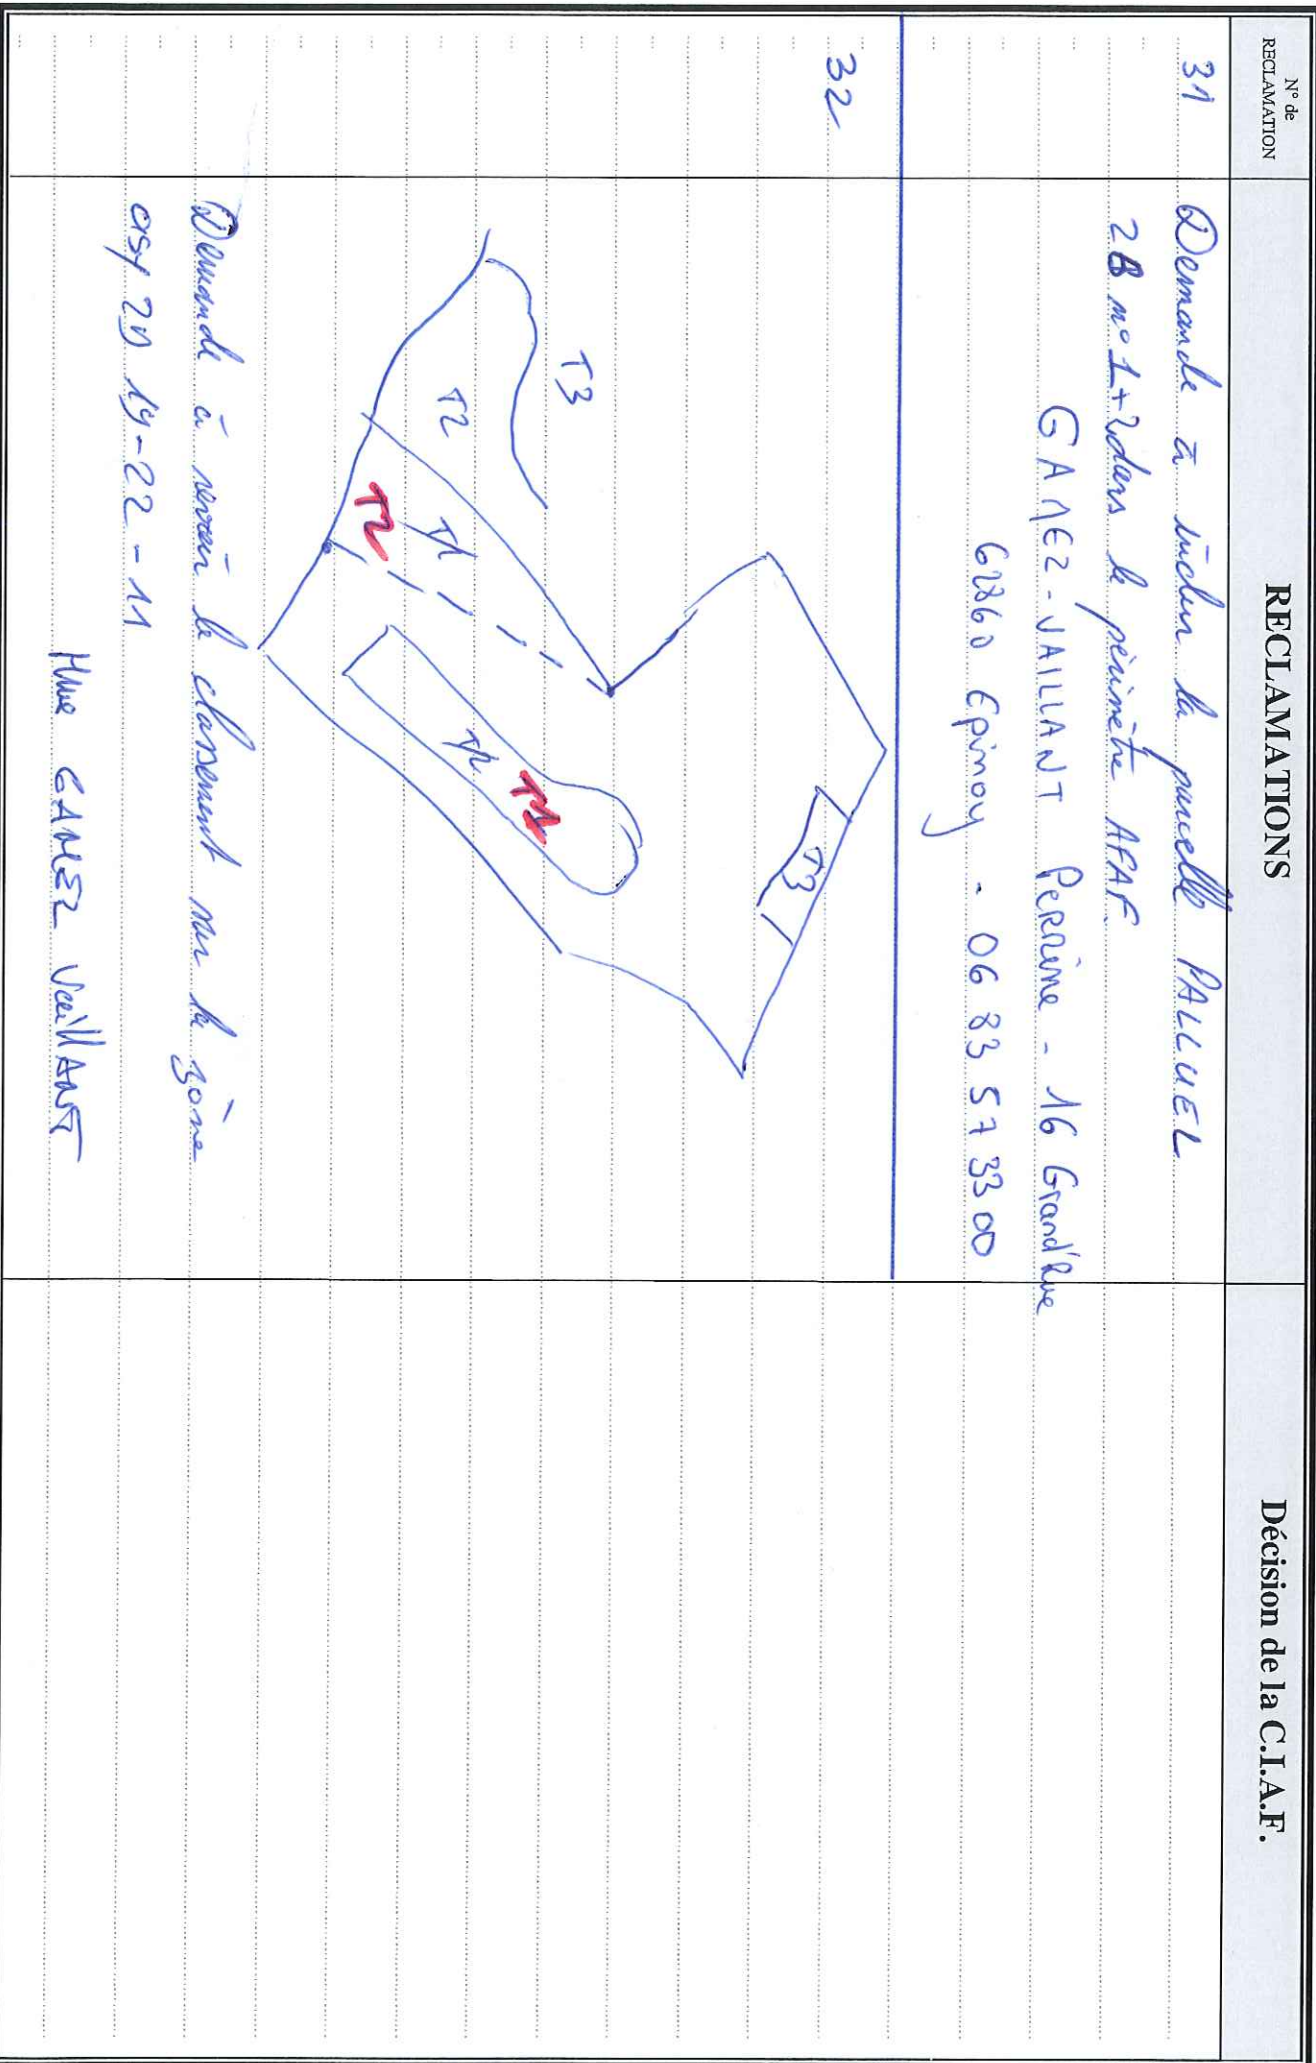 N° de
RECLAMATION
RECLAMATIONS
Décision de la C.I.A.F.
31
Demande à inclure la parcelle PALLUEL
ZB n° 1+2 dans le périmètre AFAF.
GAMEZ-VAILLANT Perrine - 16 Grand'Rue
62860 Epinoy - 06 83 57 33 00
32
T3
T3
T2
T1
T2
T1
Demande à revoir le classement sur la zône
ZD 19-22-11
Mme GAMEZ VaillANT